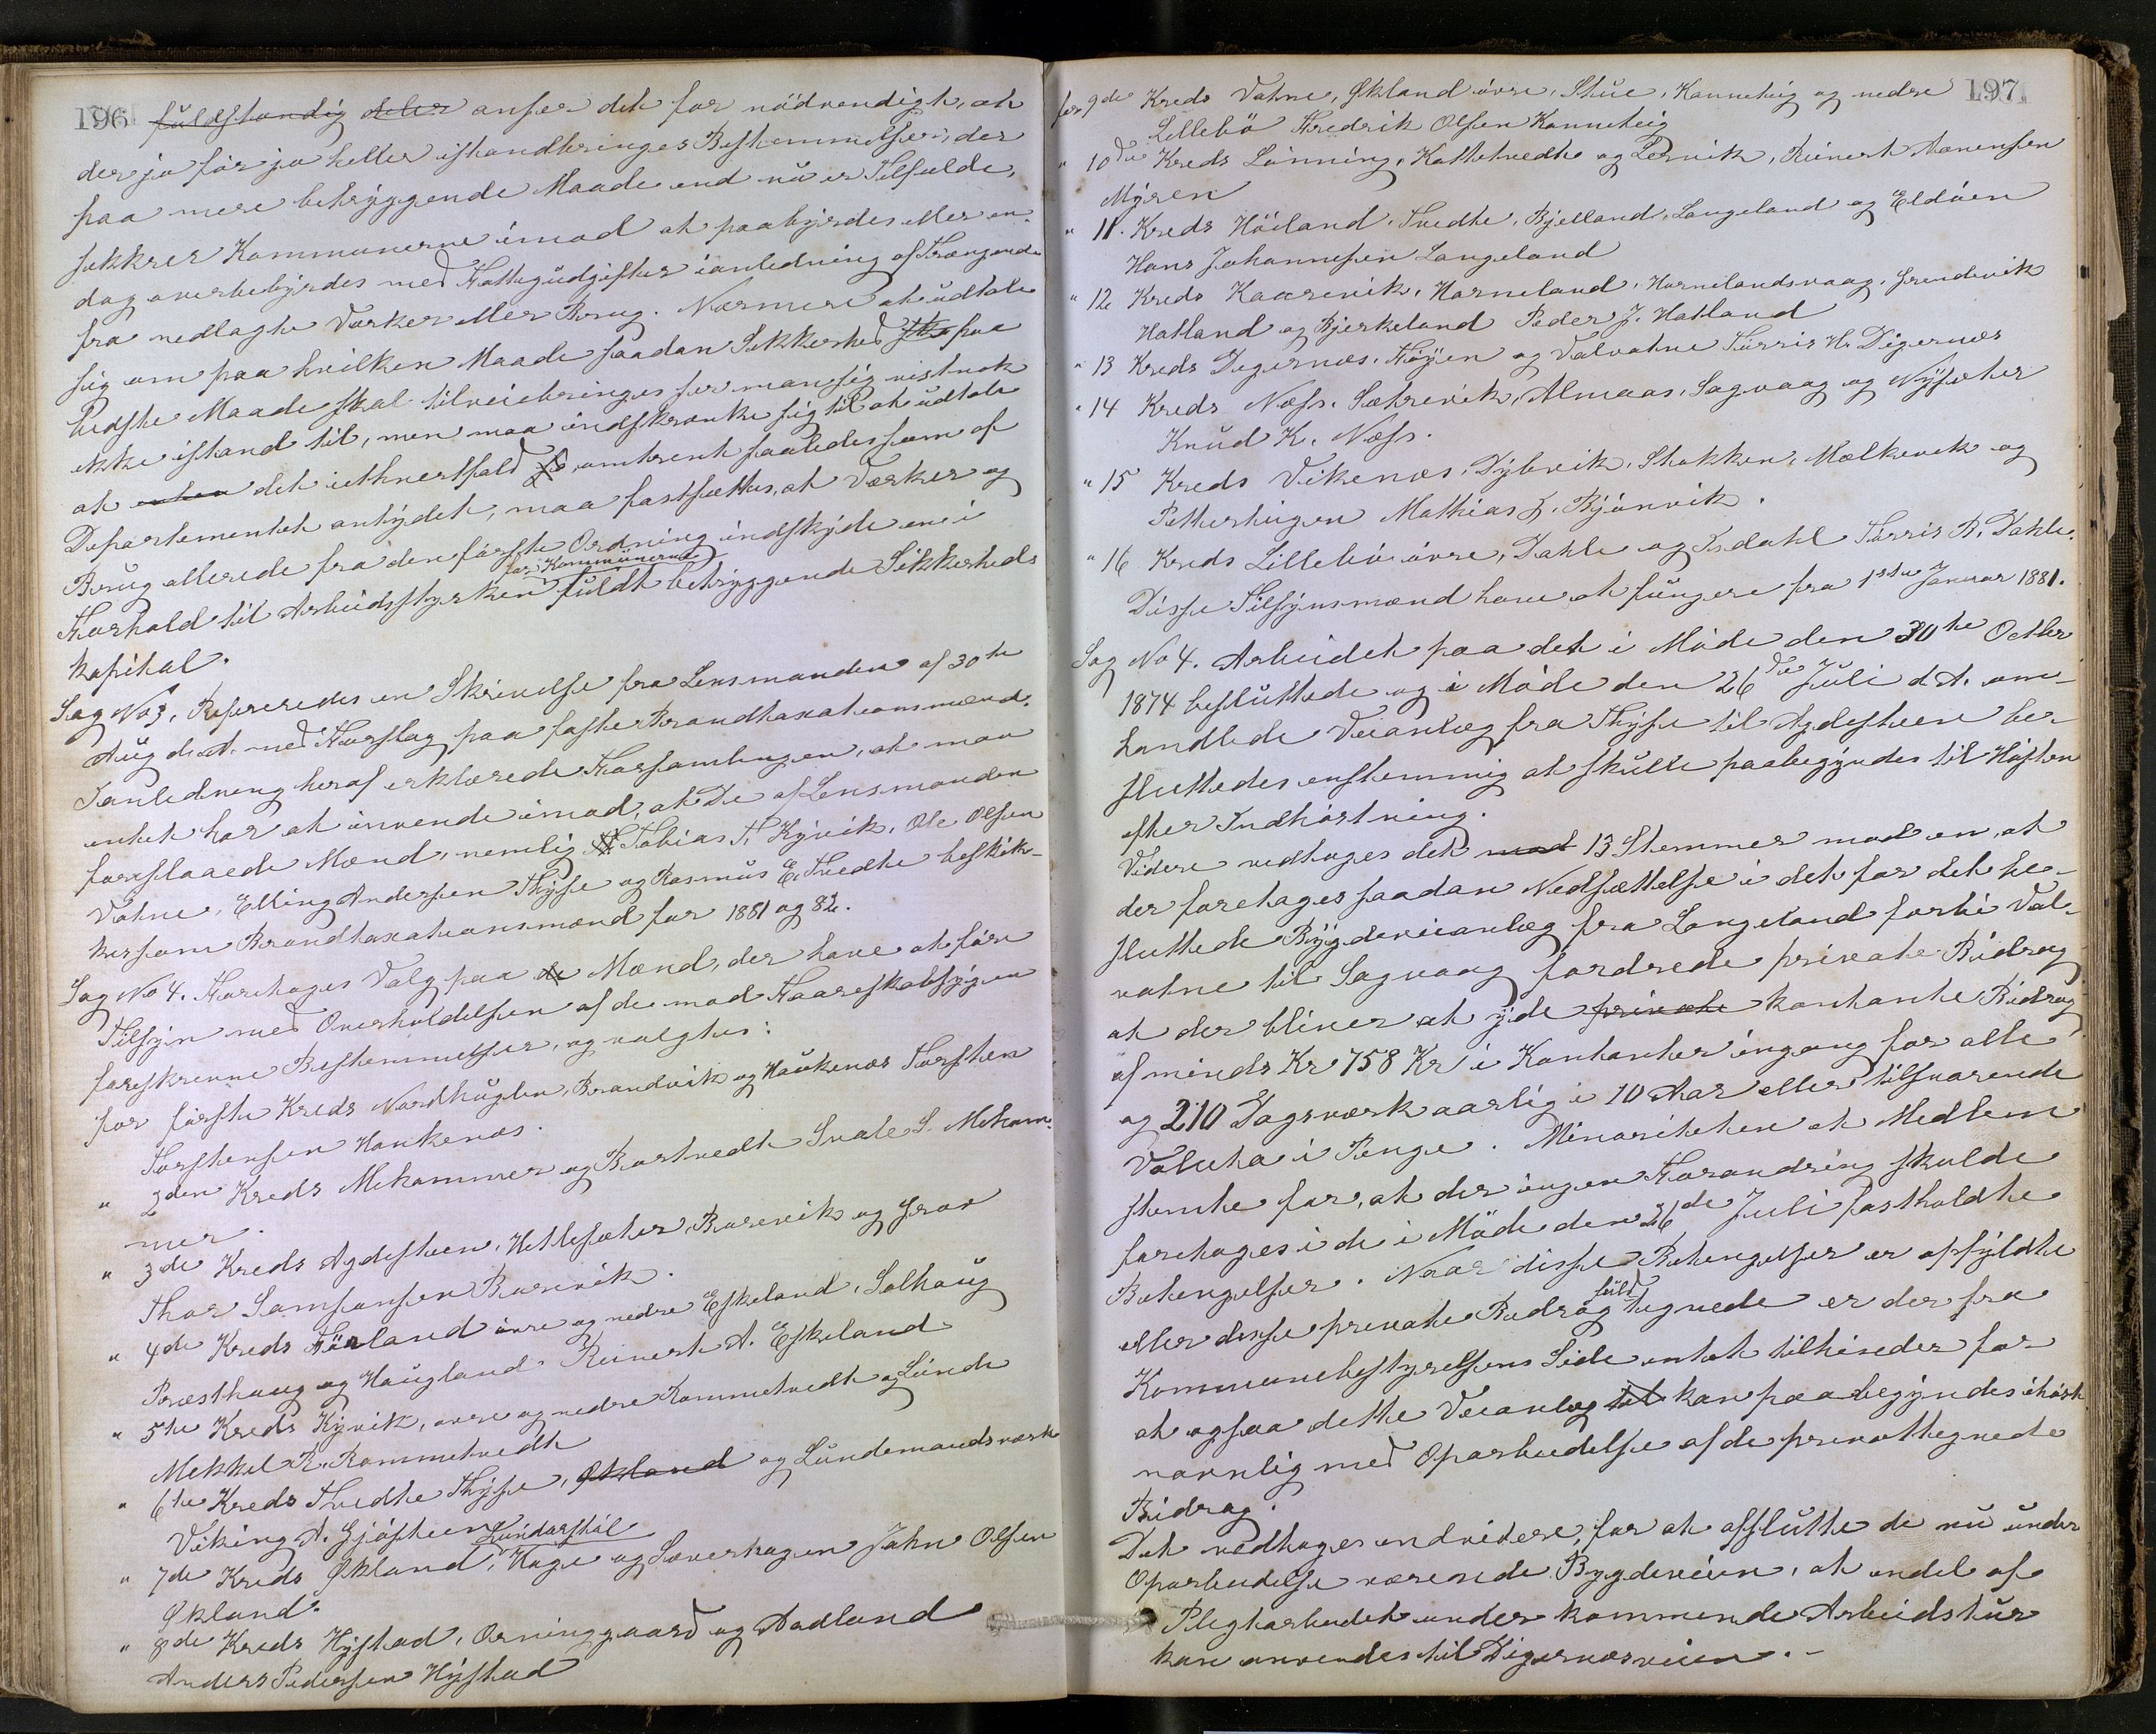 196
fuldstændig eller anser det for nödvendigt, at
der jo för jo heller istandbringes Bestemmelser, der
paa mere betryggende Maade end nu er Tilfælde,
sikkrer Kommunerne imod at paabyrdes eller en-
dog overbebyrdes med Fattigudgifter ianledning af Trængende
fra nedlagte Værker eller Brug. Nærmere at udtale
sig om paa hvilken Maade saadan Sikkerhed ska paa
bedste Maade skal tilveiebringes ser man sig vistnok
ikke istand til, men maa indskrænke sig til at udtale
at det iethvertfald omtrent saaledes som af
Departementet antydet, maa fastsættes, at Værker og
Brug allerede fra den förste Ordning indskyde en i
for Kommunerne
Forhold til Arbeidsstyrken fuldt betryggende Sikkerheds
kapital.
Sag No 3. Refereredes en Skrivelse fra Lensmanden af 30te
Aug d. A. med Forslag paa faste Brandtaxationsmænd.
Ianledning heraf erklærede Forsamlingen, at man
intet har at invende imod, at De af Lensmanden
foreslaaede Mænd, nemlig Tobias T. Kyvik, Ole Olsen
Vatne, Elling Andersen Thyse og Rasmus E. Tvedte beskik-
kes som Brandtaxationsmænd for 1881 og 82.
Sag No 4. Foretoges Valg paa de Mænd, der have at före
Tilsyn med Overholdelsen af de mod Faareskabsygen
foreskrevne Bestemmelser, og valgtes:
for förste Kreds Nordhuglen, Brandvik og Haukenæs Torsten
Torstensen Haukenæs.
" 2den Kreds Mehammer og Bartvedt Svale S. Meham-
mer.
" 3die Kreds Agdesteen, Hetlesæter, Borevik og Grov
Thor Samsonsen Borevik.
" 4de Kreds Förland övre og nedre Eskeland, Solhaug
Præsthaug og Haugland Reinert A. Eskeland
" 5te Kreds Kyvik, övre og nedre Rommetvedt og Lunde
Mekkel R. Rommetvedt
" 6te Kreds Tvedte Thyse, Økland og Lundemandsværk
Viking A. Gjösteen
Lundarstöl
" 7de Kreds Økland, Hage og Sæverhagen John Olsen
Økland.
" 8de Kreds Hystad, Orninggaard og Aadland
Anders Pedersen Hystad
197
for 9de Kreds Vatne, Økland övre, Stue, Kanneteig og nedre
Lillebö Fredrik Olsen Kanneteig
" 10de Kreds Lönning, Kattetvedt og Lervik, Reinert Monensen
Myren
" 11. Kreds Höiland, Tvedte, Bjelland, Langeland og Eldöen
Hans Johannesen Langeland
" 12 Kreds Kaarevik, Horneland, Hornelandsvaag, Grundevik
Hatland og Bjerkeland Peder J. Hatland
" 13 Kreds Digernæs, Föyen og Valvatne Torris H. Digernæs
" 14 Kreds Næss, Sætrevik, Almaas, Sagvaag og Nysæter
Knud K. Næss.
" 15 Kreds Vikenæs, Dybvik, Stokken, Mælkevik og
Petterteigen Mathias J. Björnvik.
" 16 Kreds Lillebö övre, Dahle og Isdahl Torris A. Dahle.
Disse Tilsynsmænd have at fungere fra 1ste Januar 1881.
Sag No 4. Arbeidet paa det i Möde den 30te Octbr
1874 besluttede og i Möde den 26de Juli d. A. om-
handlede Veianlæg fra Thyse til Agdesteen be-
sluttedes enstemmig at skulle paabegyndes til Hösten
efter Indhöstning.
Videre vedtoges det mod 13 Stemmer mod en, at
der foretages saadan Nedsættelse i det for det be-
sluttede Bygdeveianlæg fra Langeland forbi Val-
vatne til Sagvaag fordrede private Bidrag
at der bliver at yde private kontante Bidrag
af mindst Kr 758 Kr i Kontanter engang for alle
og 210 Dagsværk aarlig i 10 Aar eller tilsvarende
Valuta i Penge. Minoriteten et Medlem
stemte for, at der ingen Forandring skulde
foretages i de i Möde den 26de Juli fastholdte
Betingelser. Naar disse Betingelser er opfyldte
fuld
eller disse private Bidrag tegnede er der fra
Kommunebestyrelsens Side intet tilhinder for
at ogsaa dette Veianlæg til kan paabegyndes ihöst
navnlig med Oparbeidelse af de privattegnede
Bidrag.
Det vedtoges endvidere, for at afslutte de nu under
Oparbeidelse værende Bygdeveien, at endel af
Pligtarbeidet under kommende Arbeidstur
kan anvendes til Digernæsveien.-